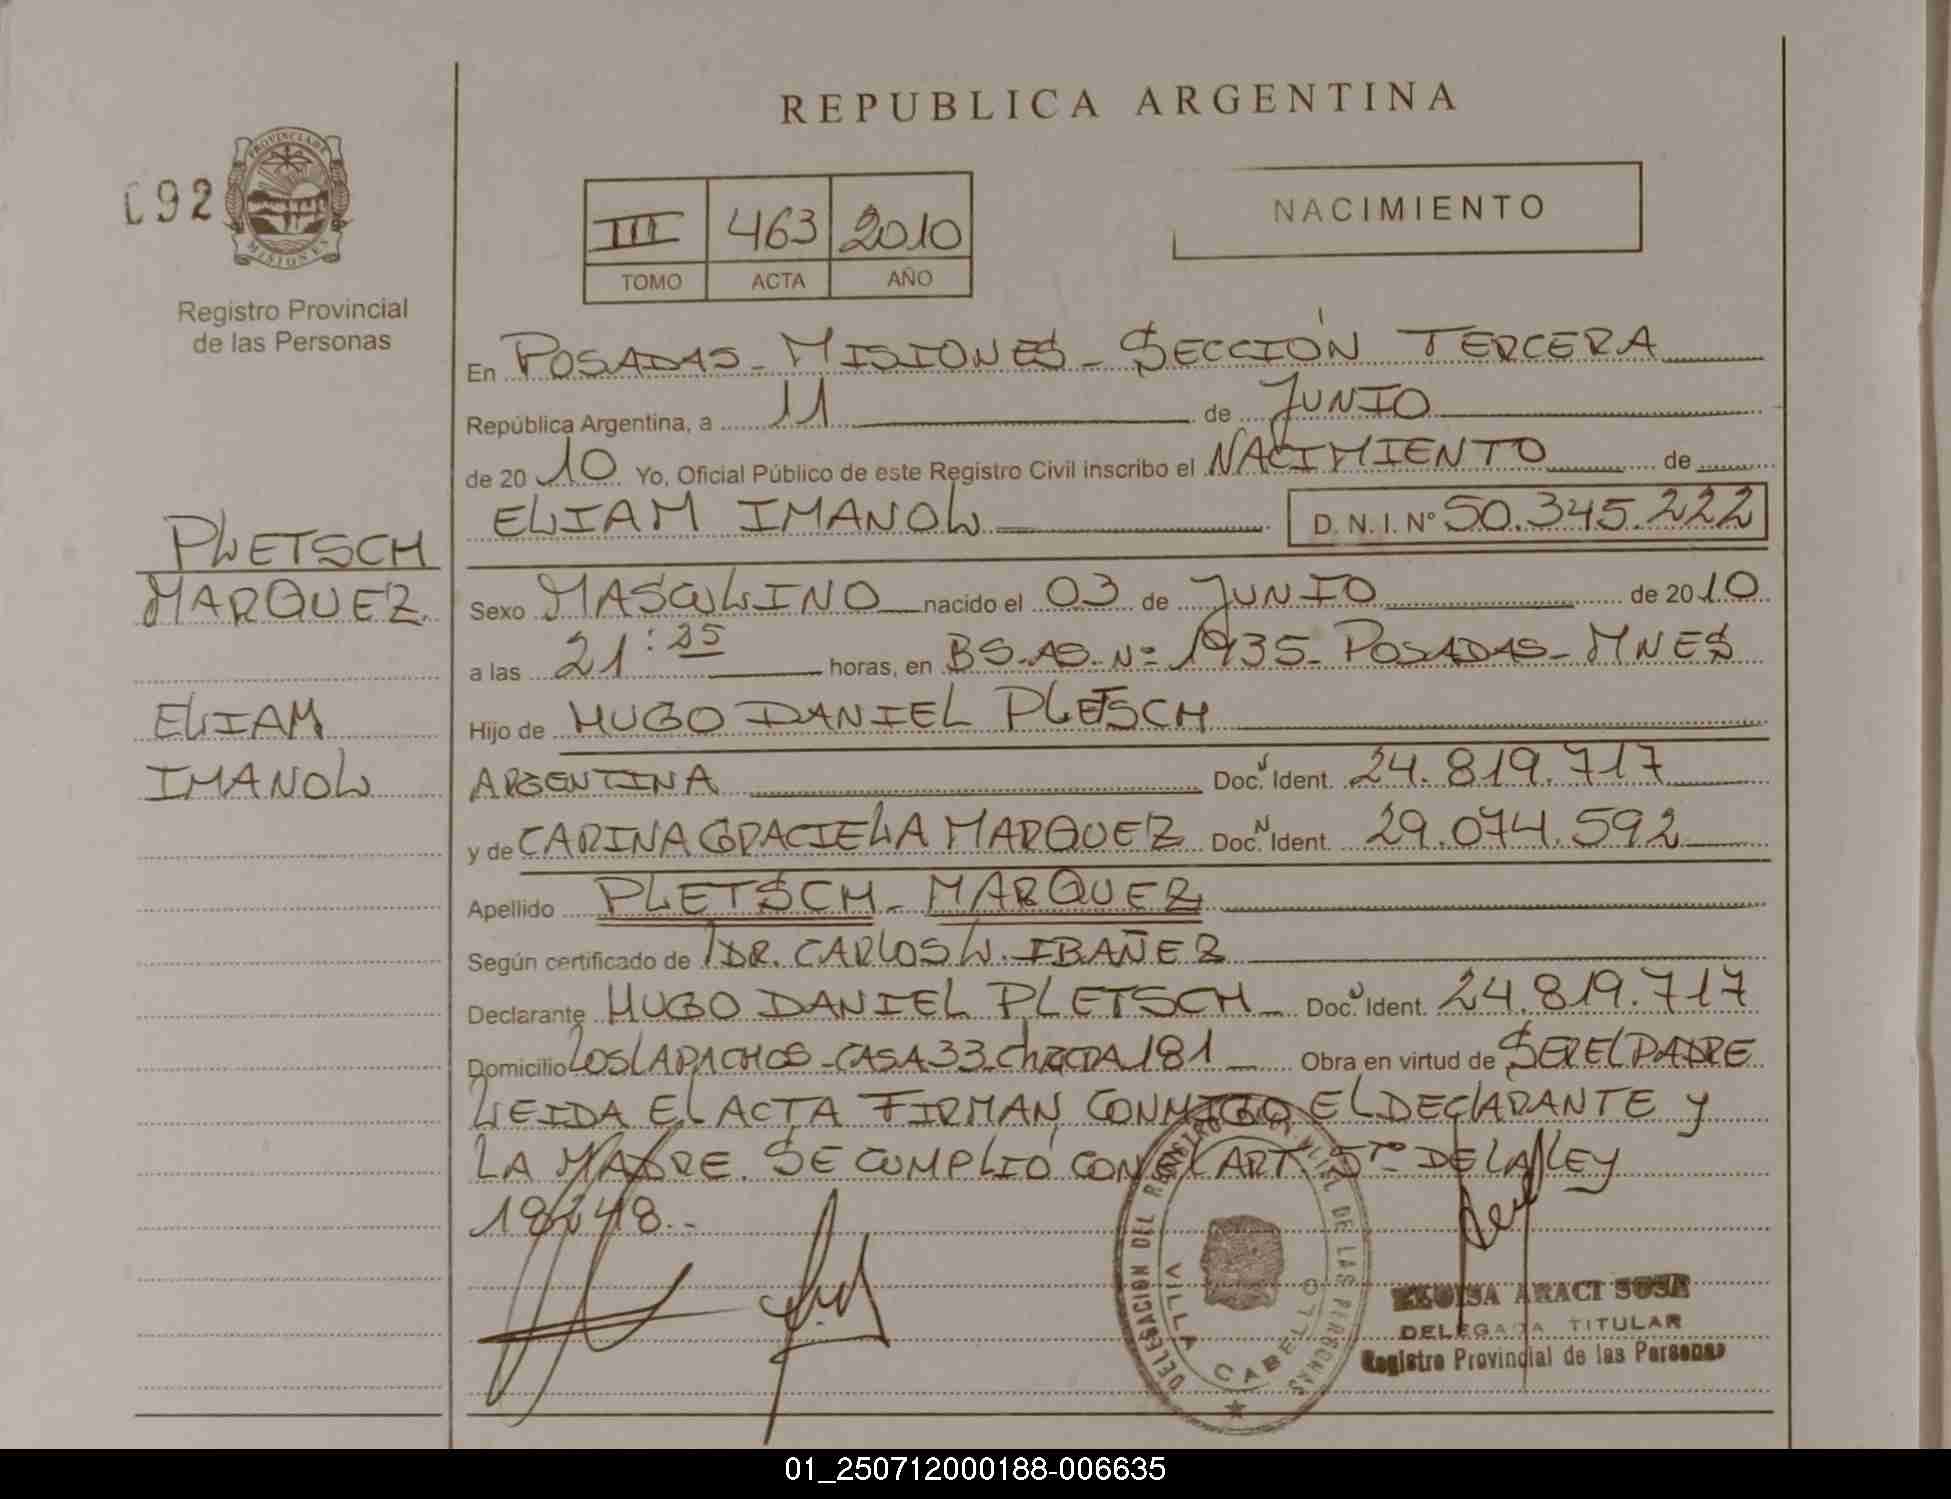 REPUBLICA ARGENTINA
092
PROVINCIA DE MISIONES
Registro Provincial
de las Personas
III 463 2010
TOMO ACTA AÑO
NACIMIENTO
En POSADAS - MISIONES - SECCIÓN TERCERA
República Argentina, a 11 de JUNIO
de 2010 Yo, Oficial Público de este Registro Civil inscribo el NACIMIENTO de
ELIAM IMANOL D.N.I. Nº 50.345.222
PLETSCH
MARQUEZ
ELIAM
IMANOL
Sexo MASCULINO nacido el 03 de JUNIO de 2010
a las 21:25 horas, en BS.AS. Nº 1935- POSADAS- MNES
Hijo de HUGO DANIEL PLETSCH
ARGENTINA Doc. N Ident. 24.819.717
y de CARINA GRACIELA MARQUEZ Doc. N Ident. 29.074.592
Apellido PLETSCH - MARQUEZ
Según certificado de DR. CARLOS W. IBAÑEZ
Declarante HUGO DANIEL PLETSCH Doc. N Ident. 24.819.717
Domicilio LOS LAPACHOS - CASA 33 - Chacra 181 Obra en virtud de SER EL PADRE
LEIDA EL ACTA FIRMAN CONMIGO EL DECLARANTE y
LA MADRE. SE CUMPLIÓ CON EL ART. 5to DE LA LEY
18248.-
DELEGACION DEL REGISTRO PROVINCIAL DE LAS PERSONAS
VILLA CABELLO
ELOISA ARACI SOSA
DELEGADA TITULAR
Registro Provincial de las Personas
01_250712000188-006635